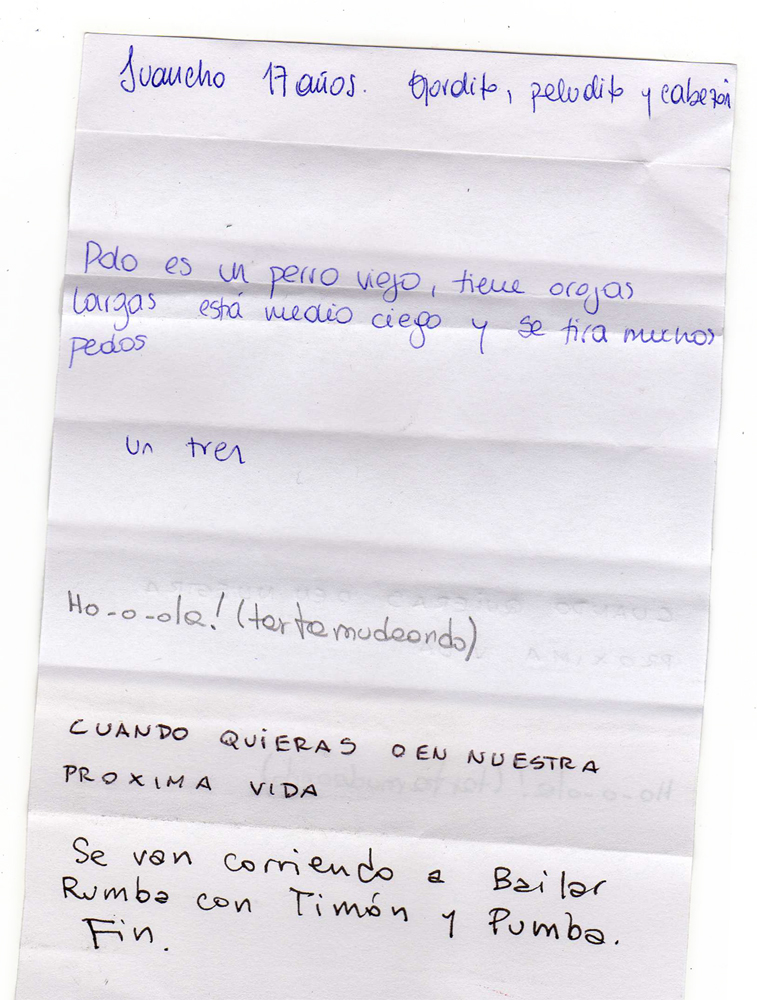 Juancho 17 años. Gordito, peludito y cabezón
Polo es un perro viejo, tiene orejas
largas está medio ciego y se tira muchos
pedos
un tren
Ho-o-ola! (tartamudeando)
CUANDO QUIERAS O EN NUESTRA
PROXIMA VIDA
Se van corriendo a Bailar
Rumba con Timón y Pumba.
Fin.